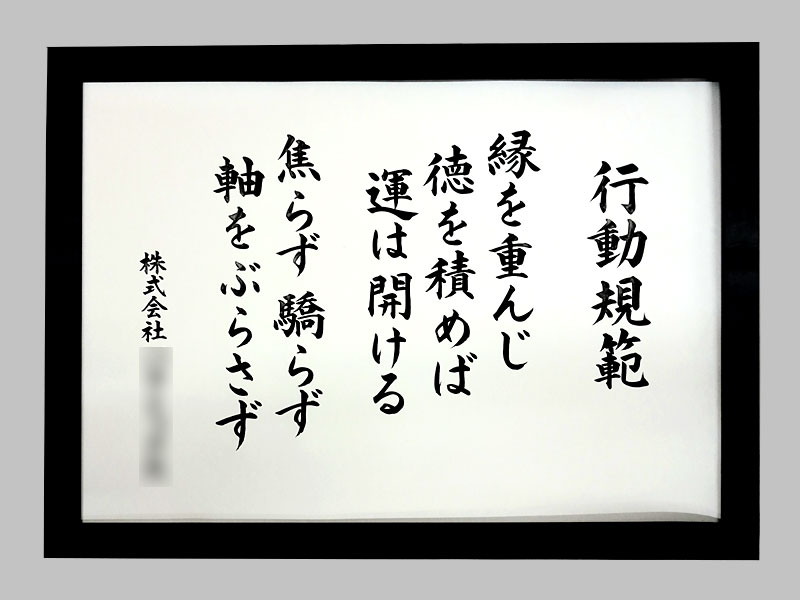 行動規範
縁を重んじ
徳を積めば
運は開ける
焦らず 驕らず
軸をぶらさず
株式会社